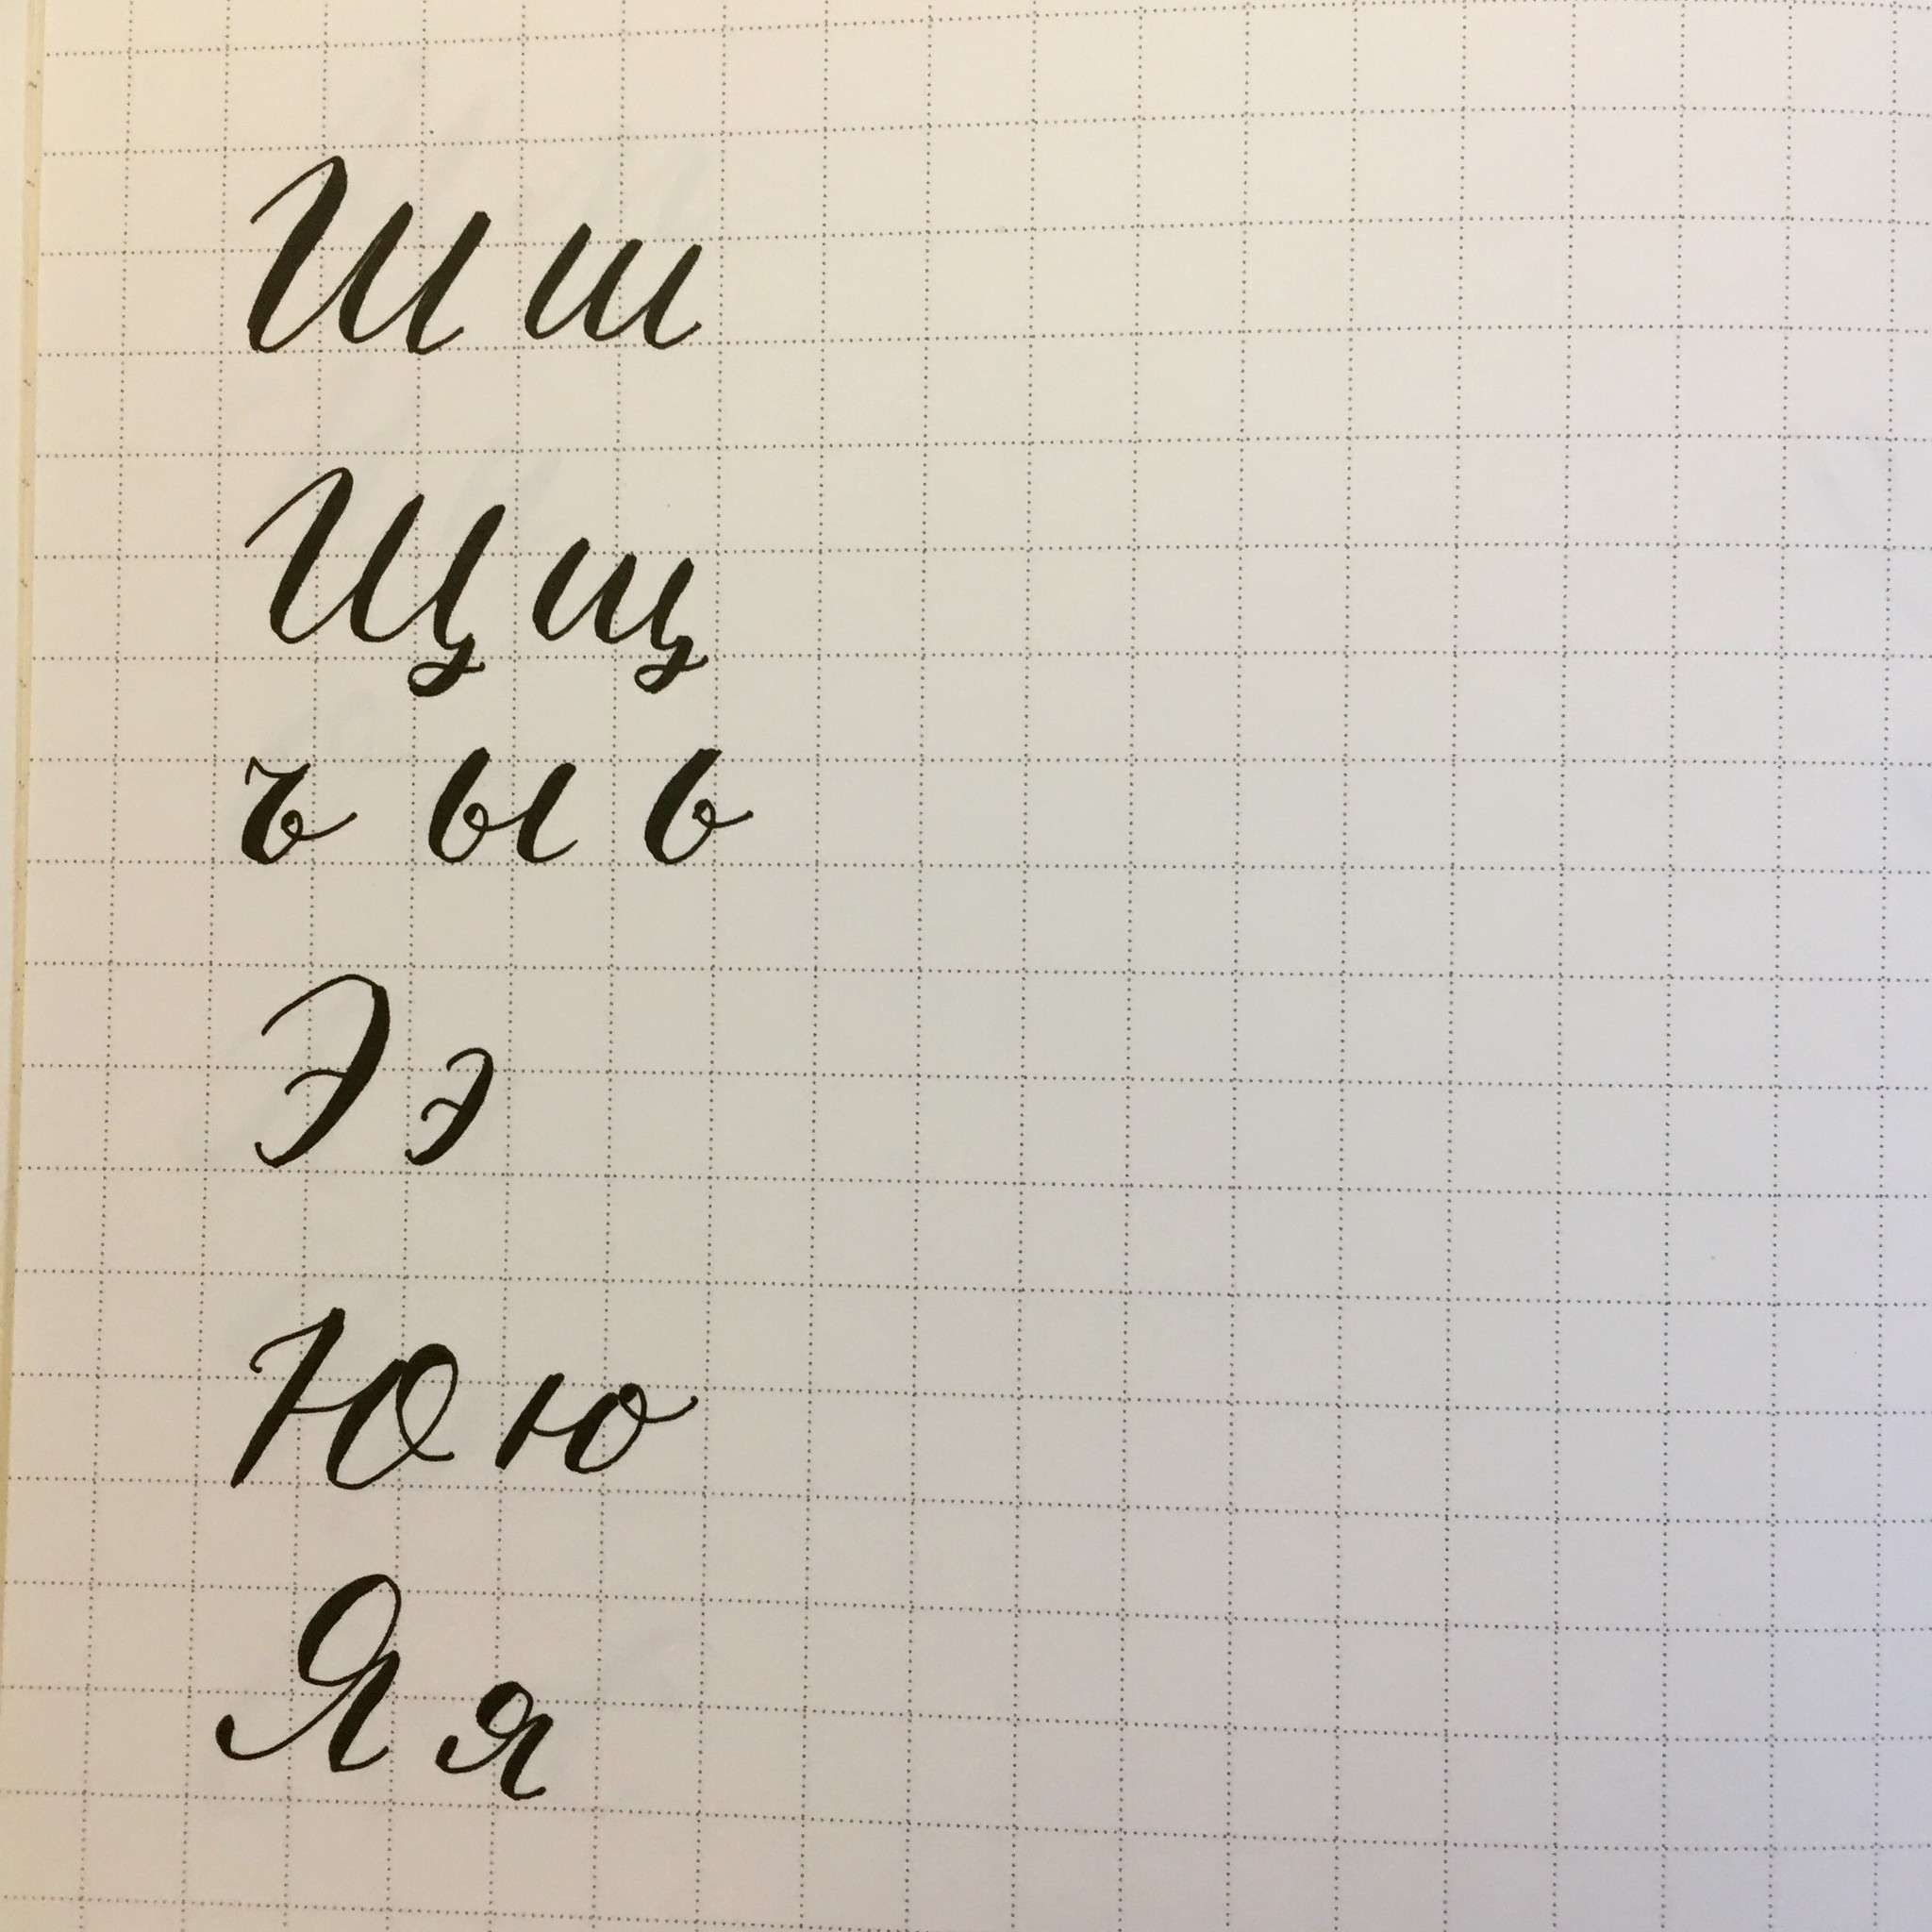 Ш ш
Щ щ
ъ ы ь
Э э
Ю ю
Я я